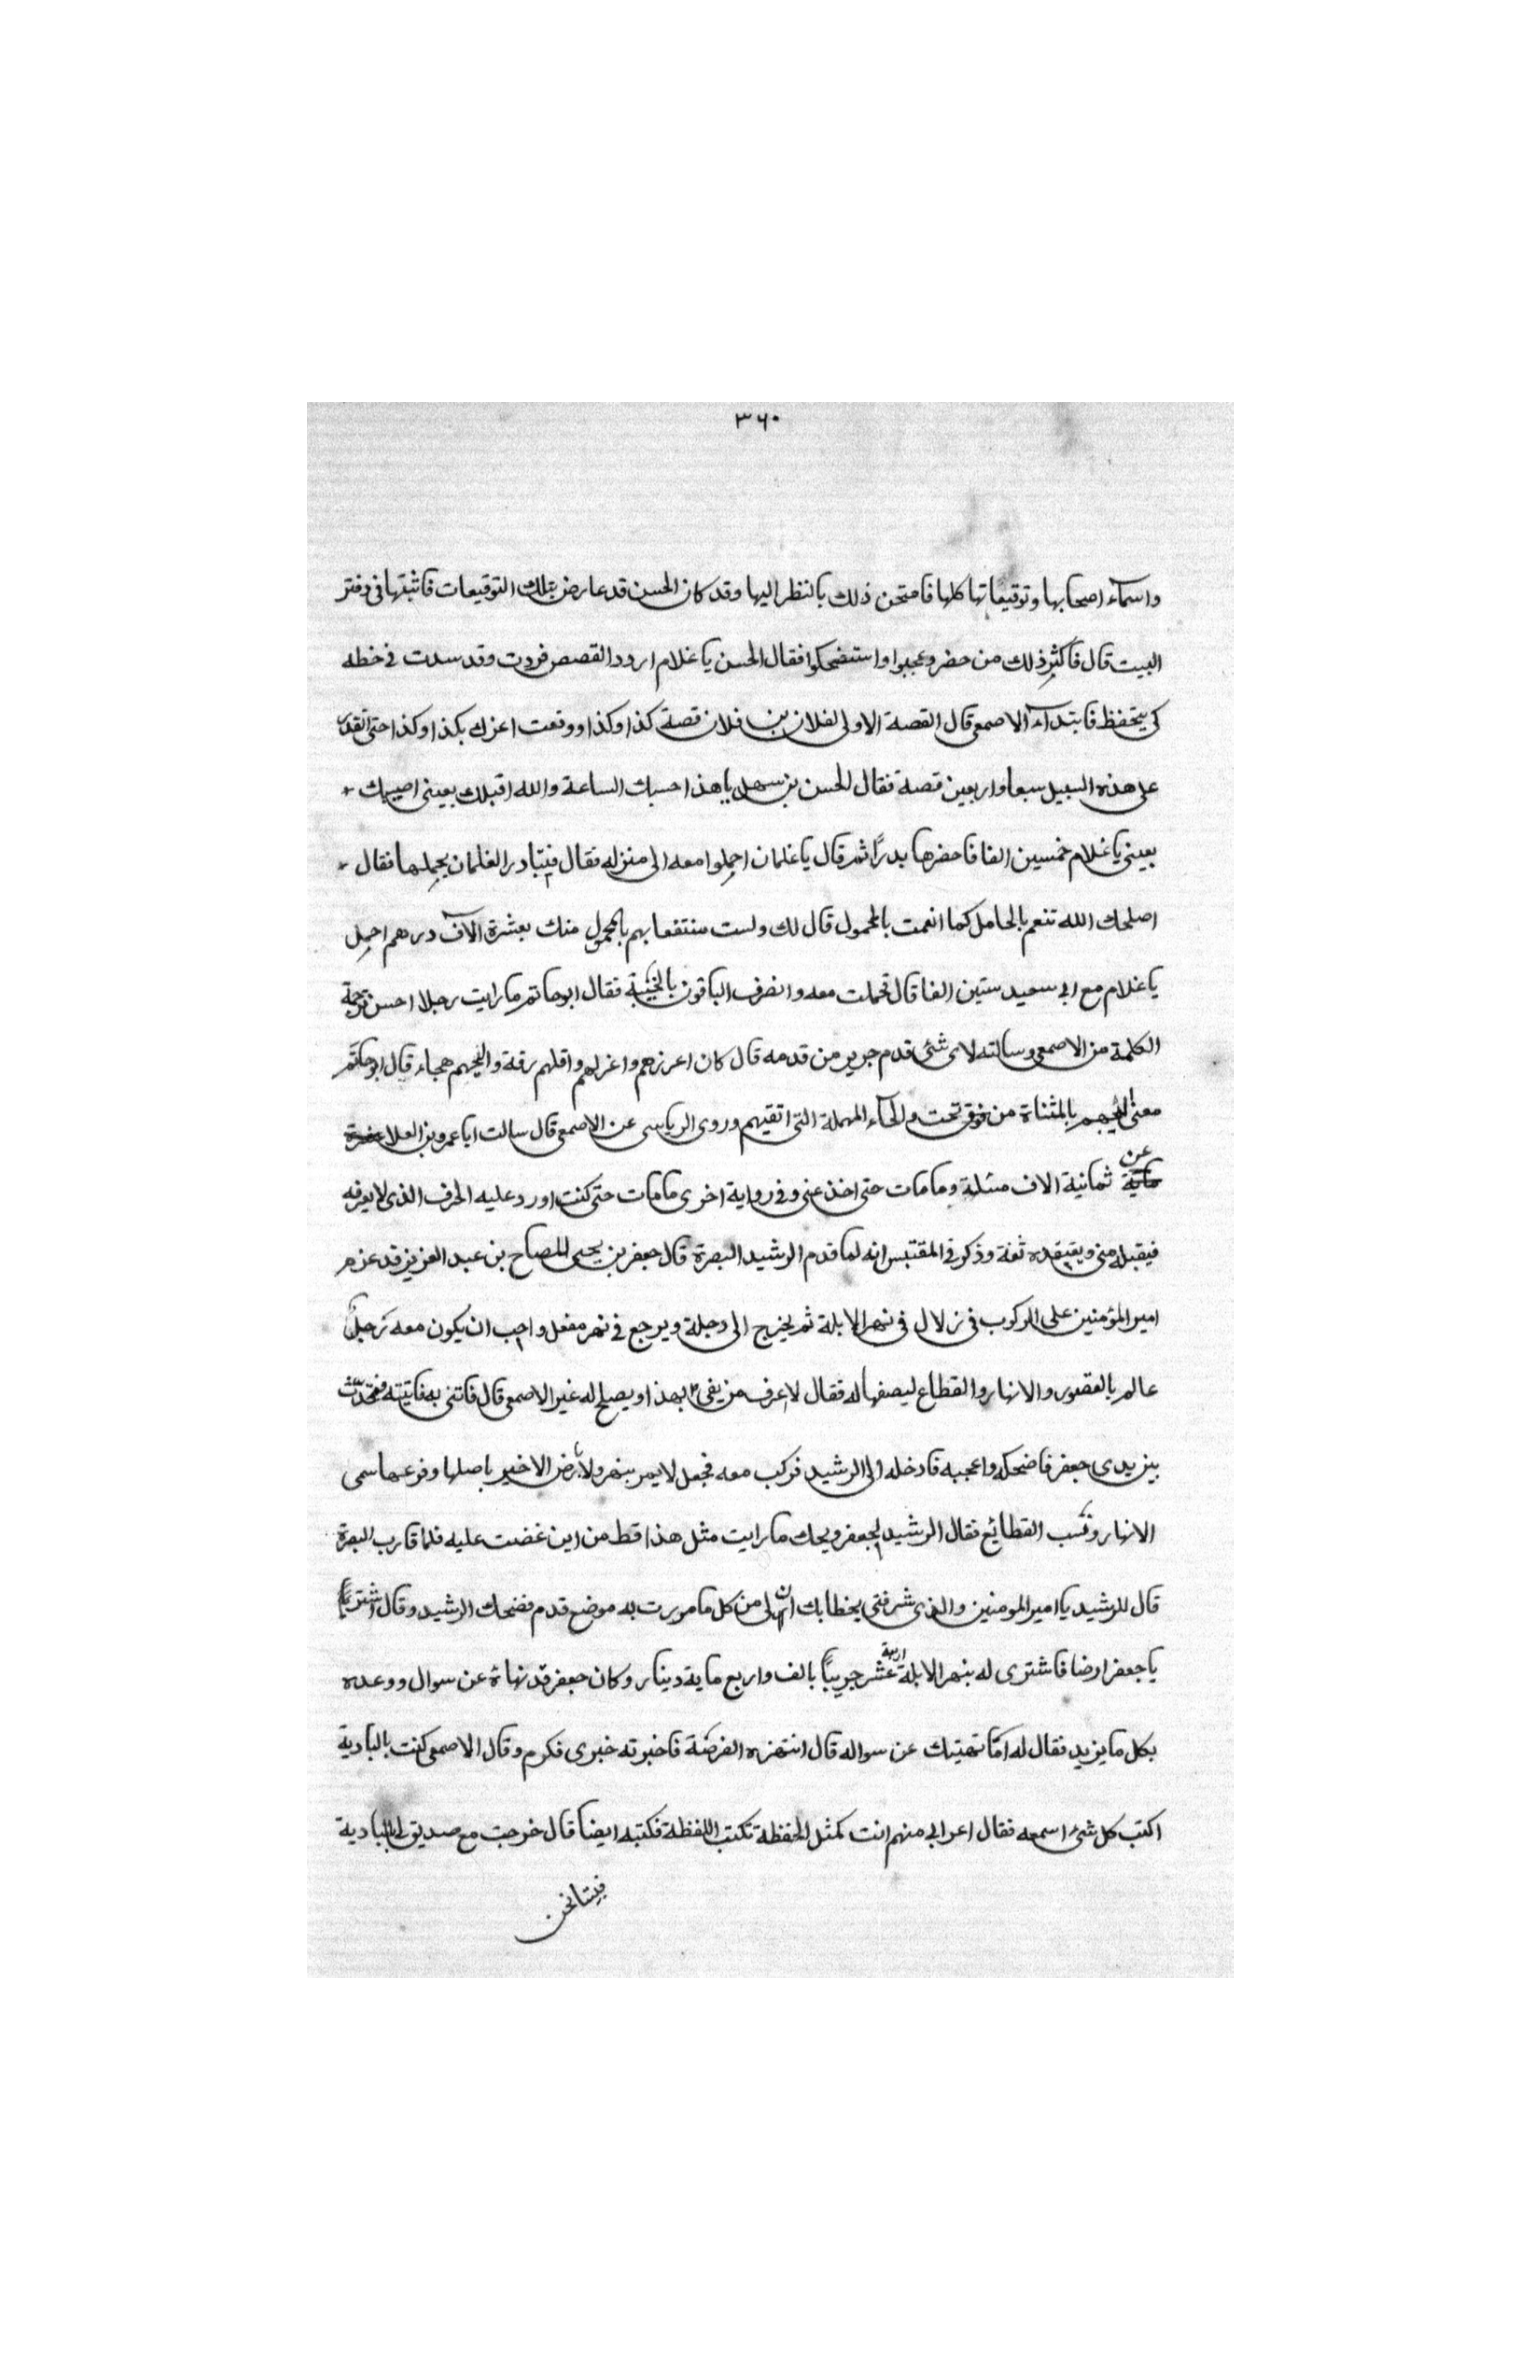 ٣٦٠
واسماء اصحابها وتوقيعاتها كلها فامتحن ذلك بالنظر اليها وقد كان الحسن قد عارض بتلك التوقيعات فاثبتها في دفتر
البيت قال فاكثر ذلك من حضر وعجبوا واستضحكوا فقال الحسن يا غلام اردد القصص فردت وقد سدت في خطه
كي يتحفظ فابتداء الاصمعي قال القصة الاولى لفلان بن فلان قصة كذا وكذا ووقعت اعزك بكذا وكذا حتى انفد
على هذه السبيل سبعا واربعين قصة فقال الحسن بن سهل يا هذا حسبك الساعة والله اقبلك بعيني اصيبك
بعيني يا غلام خمسين الفا فاحضرها بدرًا ثم قال يا غلمان احملوا معه الى منزله فقال فتبادر الغلمان بحملها فقال
اصلحك الله تنعم بالحامل كما انعمت بالمحمول قال لك ولست منتفعا بهم بالمحمول منك بعشرة الآف درهم احمل
يا غلام مع ابي سعيد ستين الفا قال فحملت معه وانصرف الباقون بالخيبة فقال ابوحاتم ما رايت رجلا احسن ترجمة
الكلمة من الاصمعي وسالته لاى شئ قدم جرير من قدمه قال كان اعرزهم واغزلهم واقلهم رقة واليحهم هجاء قال ابوحاتم
معنى اليحهم بالمثناة من فوق تحت والحاء المهملة التي اتقيهم وروى الرياسى عن الاصمعي قال سالت ابا عمرو بن العلا
عن ثمانية الاف مسئلة وما مات حتى اخذ عني وفي رواية اخرى ما مات حتى كنت اورد عليه الحرف الذى لا يعرفه
فيقبله مني ويعتقده ثقة وذكر في المقتبس انه لما قدم الرشيد البصرة قال جعفر بن يحيى للصباح بن عبد العزيز قد عزم
امير المؤمنين على الركوب في زلال في نهر الابلة ثم يخرج الى دجلة ويرجع في نهر مغعل واحب ان يكون معه رجل
عالم بالقصور والانهار والقطاع ليصفها له فقال لا اعرف من يفي بهذا ويصلح له غير الاصمعي قال فاتني به فاتيته فتحدث
بين يدى جعفر فاضحكه واعجبه فادخله الى الرشيد فركب معه فجعل لا يمر بنهر ولا ارض الا خبر باصلها وفرعها سمى
الانهار ونسب القطائع فقال الرشيد لجعفر ويحك ما رايت مثل هذا قط من اين غضت عليه فلما قارب البصرة
قال للرشيد يا امير المومنين والذى شرفني بخطابك ان لي من كل ما مررت به موضع قدم فضحك الرشيد وقال اشتر
يا جعفر ارضا فاشترى له بنهر الابلة اربعة عشر جريبًا بالف واربع ماية دينار وكان جعفر قد نهاه عن سوال ووعده
بكل ما يريد فقال له اما نهيتك عن سواله قال انتهزه الفرصة فاخبرته خبرى فكرم وقال الاصمعي كنت بالبادية
اكتب كل شئ اسمعه فقال اعرابي منهم انت كمثل الحفظة تكتب اللفظة فكتبه ايضا قال خرجت مع صديق لي بالبادية
فبينا نحن